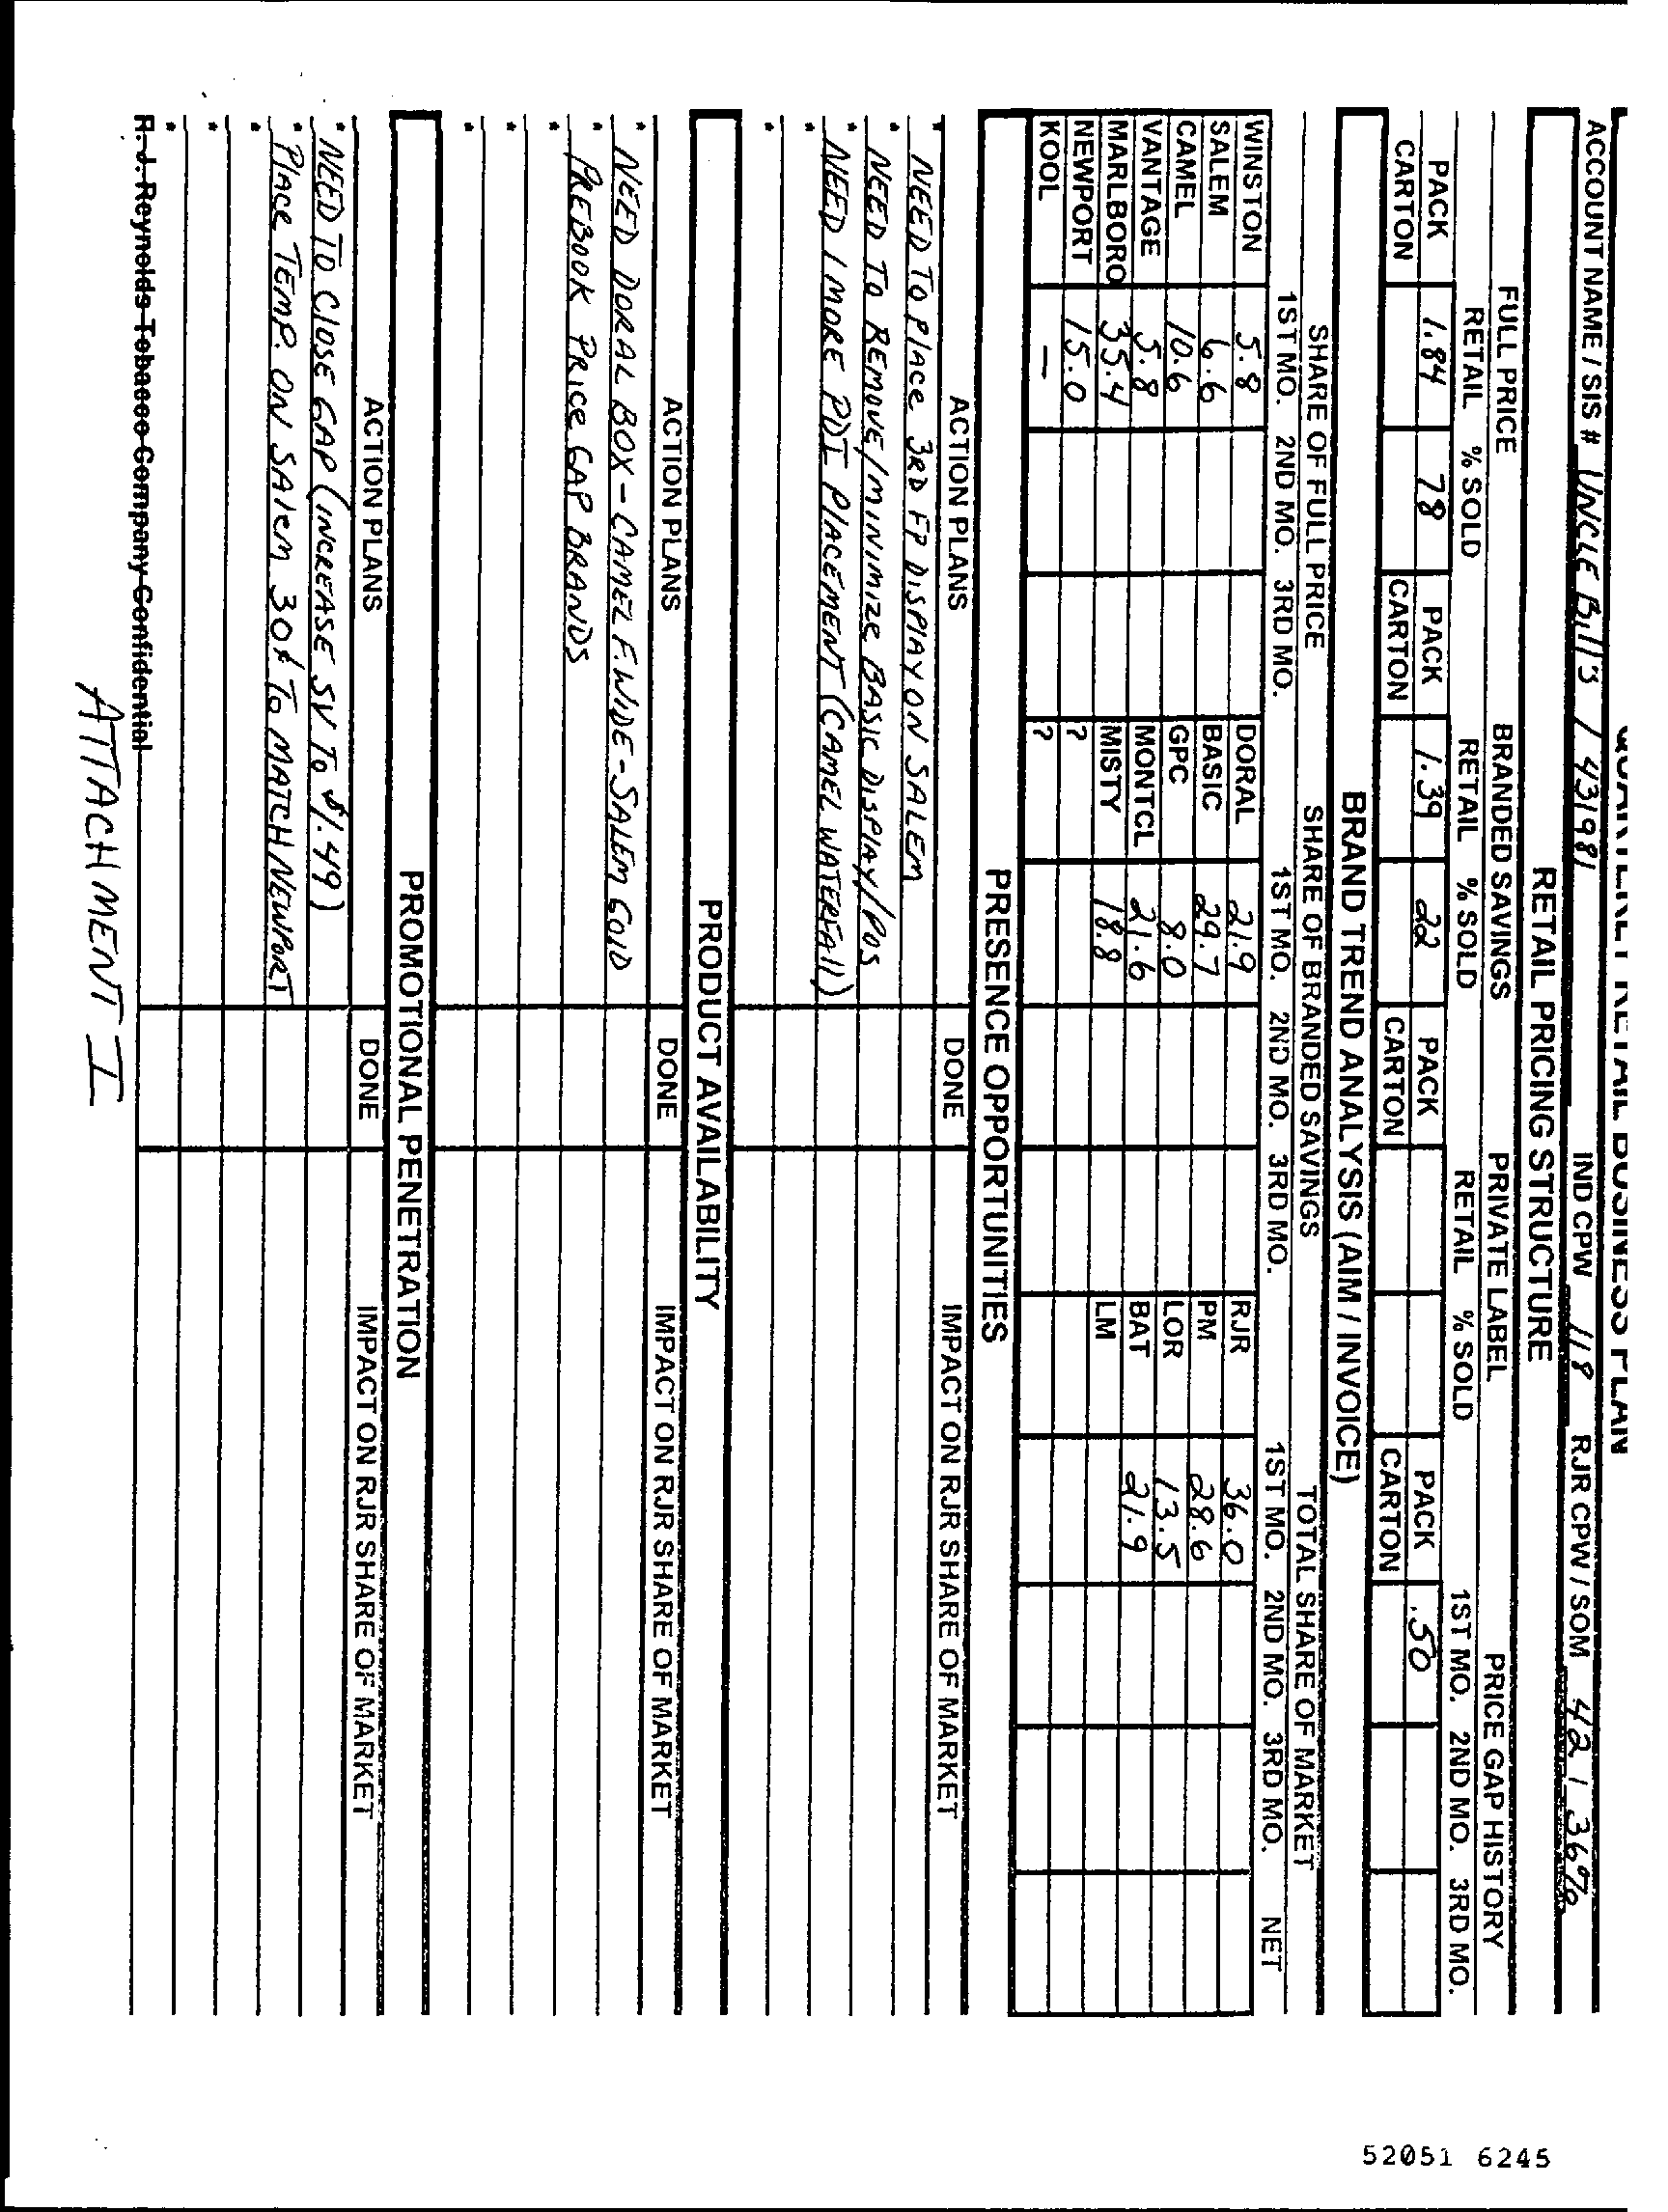 QUARTERLY RETAIL BUSINESS PLAN
ACCOUNT NAME / SIS # UNCLE Bill's / 431981 IND CPW 118 RJR CPW / SOM 42 / 36%
RETAIL PRICING STRUCTURE
FULL PRICE BRANDED SAVINGS PRIVATE LABEL PRICE GAP HISTORY
RETAIL % SOLD RETAIL % SOLD RETAIL % SOLD 1ST MO. 2ND MO. 3RD MO.
PACK 1.84 78 PACK 1.39 22 PACK PACK .50
CARTON CARTON CARTON CARTON
BRAND TREND ANALYSIS (AIM / INVOICE)
SHARE OF FULL PRICE SHARE OF BRANDED SAVINGS TOTAL SHARE OF MARKET
1ST MO. 2ND MO. 3RD MO. 1ST MO. 2ND MO. 3RD MO. 1ST MO. 2ND MO. 3RD MO. NET
WINSTON 5.8 DORAL 21.9 RJR 36.0
SALEM 6.6 BASIC 29.7 PM 28.6
CAMEL 10.6 GPC 8.0 LOR 13.5
VANTAGE 5.8 MONTCL 21.6 BAT 21.9
MARLBORO 35.4 MISTY 18.8 LM
NEWPORT 15.0 ?
KOOL — ?
PRESENCE OPPORTUNITIES
ACTION PLANS DONE IMPACT ON RJR SHARE OF MARKET
* NEED TO PlACE 3RD FP DISPlAY ON SALEM
* NEED TO REMOVE/MINIMIZE BASIC DISPlAY/POS
* NEED 1 MORE PDI PlACEMENT (CAMEL WATERFAll)
*
*
PRODUCT AVAILABILITY
ACTION PLANS DONE IMPACT ON RJR SHARE OF MARKET
* NEED DORAL BOX - CAMEL F. WIDE - SALEM GOlD
* PREBOOK PRICE GAP BRANDS
*
*
*
PROMOTIONAL PENETRATION
ACTION PLANS DONE IMPACT ON RJR SHARE OF MARKET
* NEED TO ClOSE GAP (INCREASE SV TO $1.49)
* PlACE TEMP. ON SAlEM 30¢ TO MATCH NEWPORT
*
*
*
R. J. Reynolds Tobacco Company Confidential
ATTACHMENT I
52051 6245